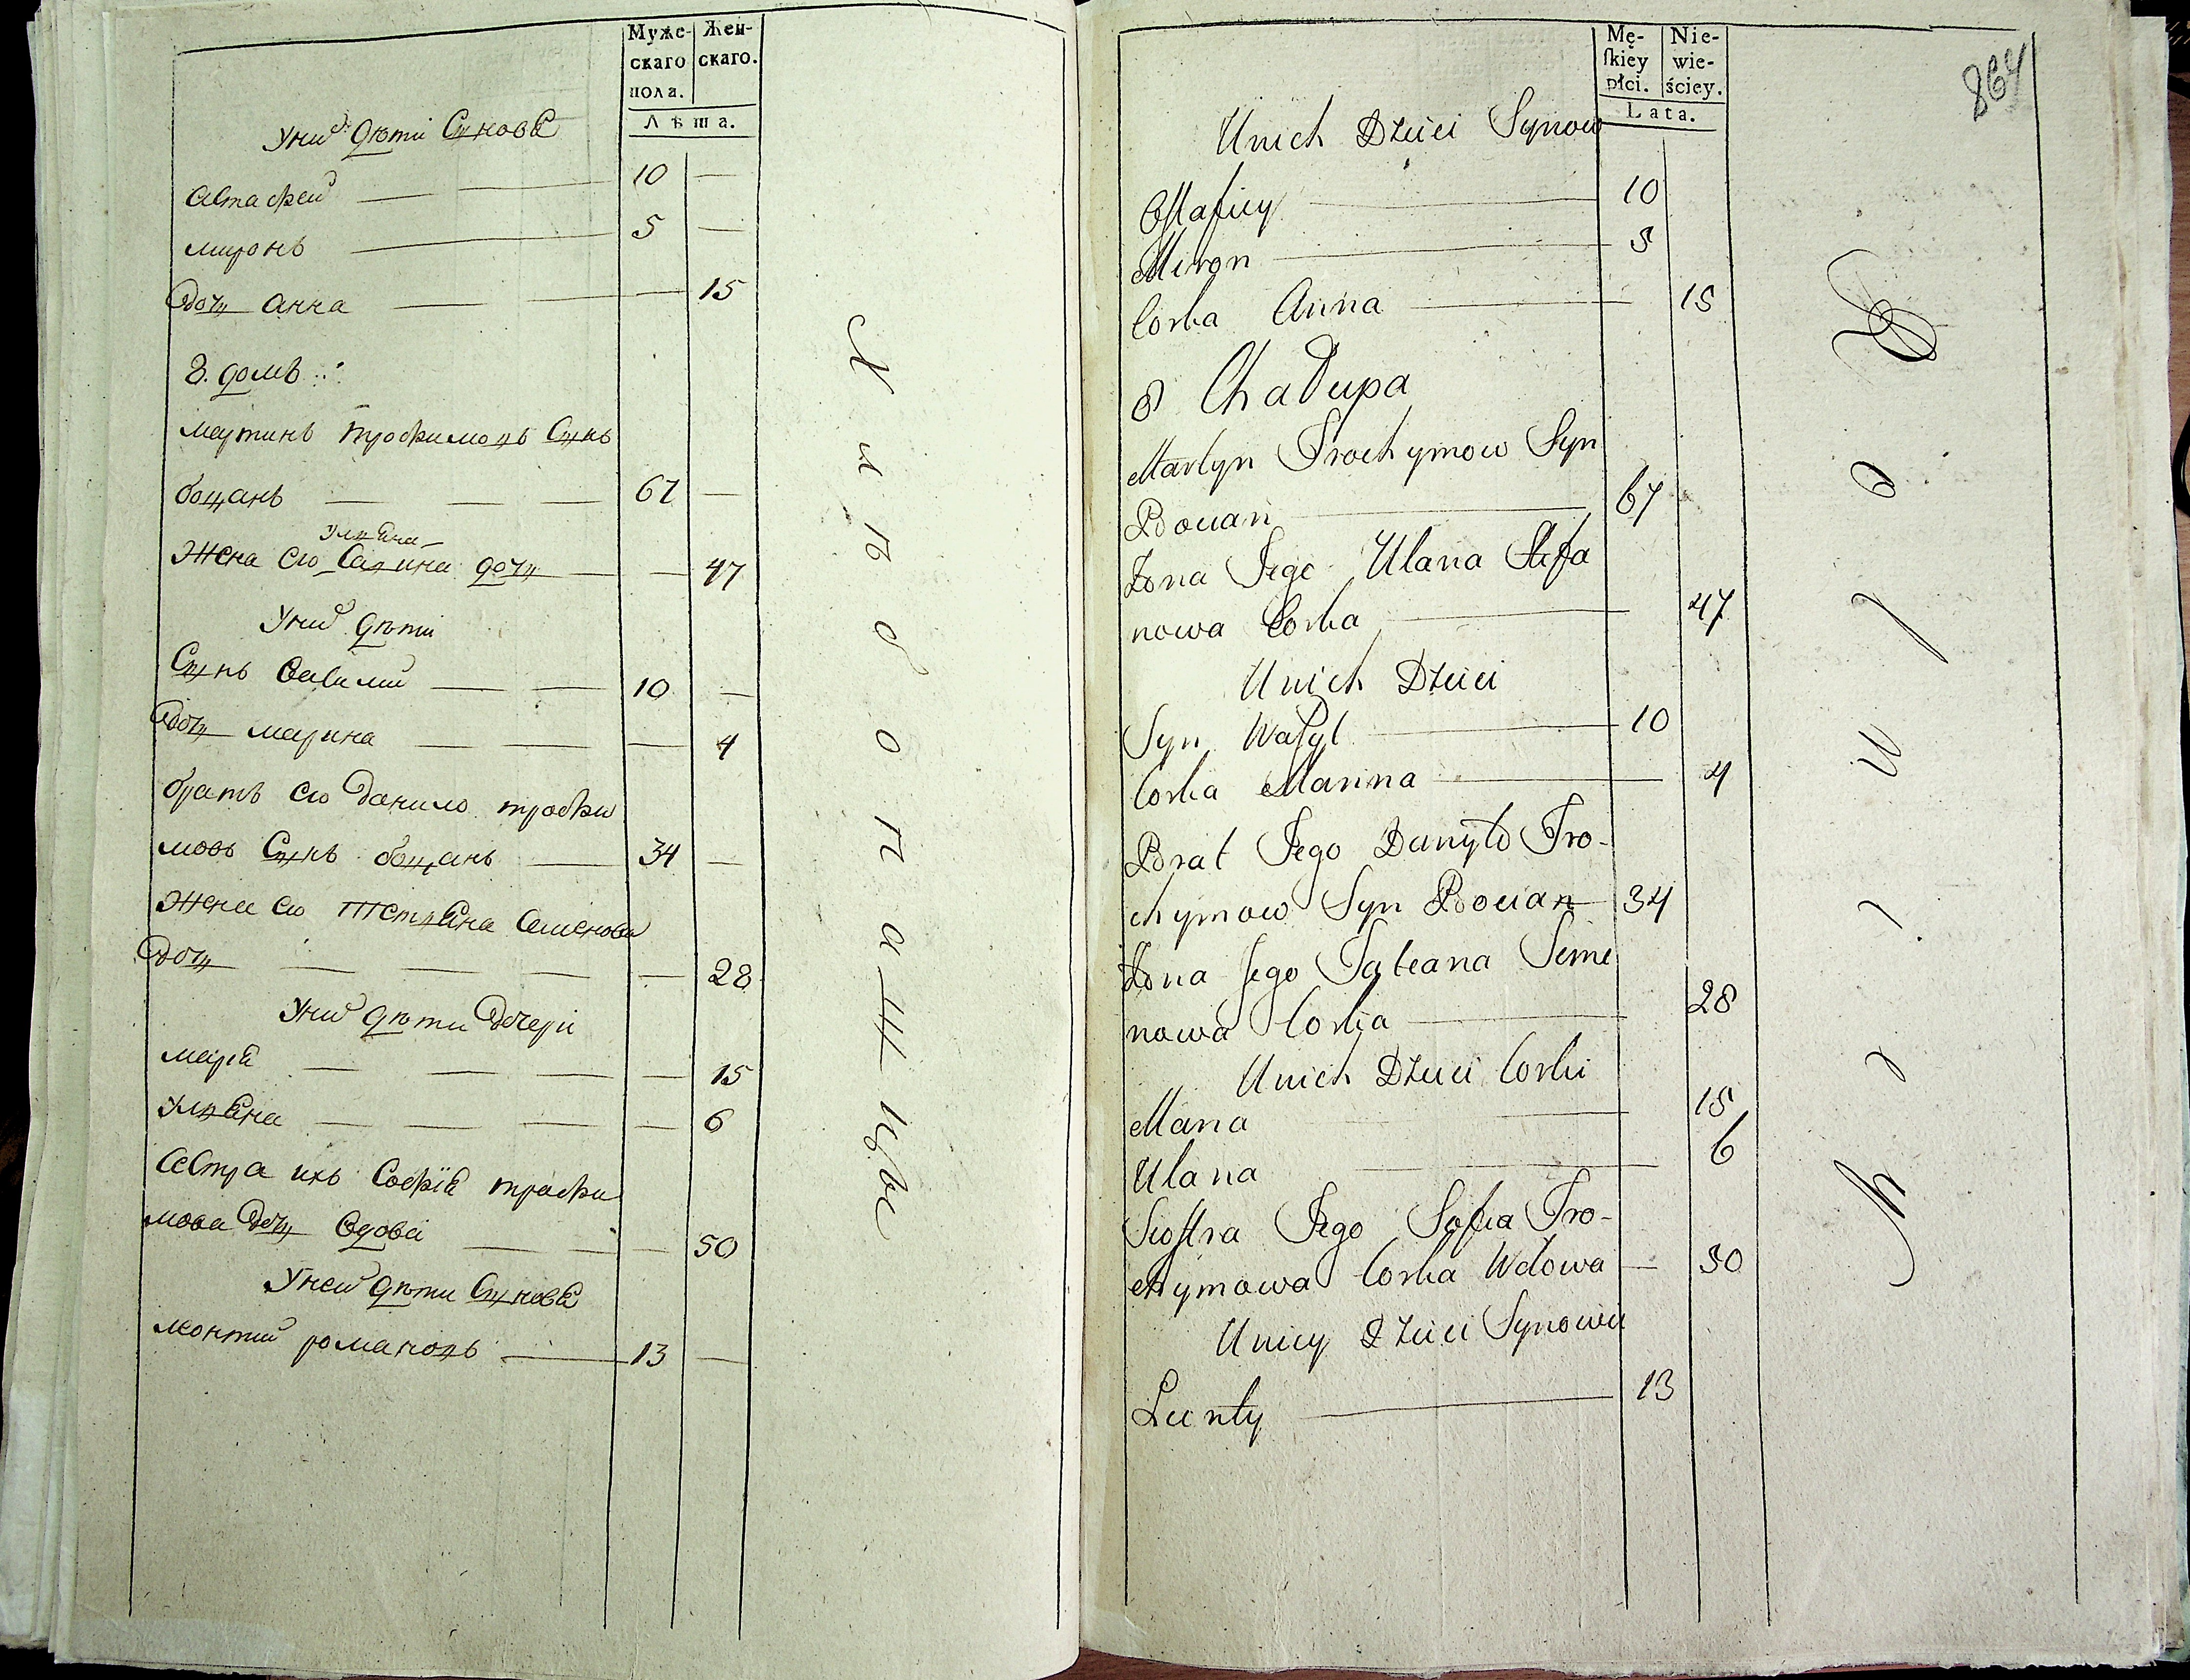 Муже-
скаго
пола.
Жен-
скаго.
Лѣта.
Уних дѣти Сынове
Астафей 10
миронъ 5
Дочь анна 15
8. домъ
мартинъ трофимовъ Сынъ
боцанъ 67
Уляна
Жена его дочь 47
Уних дѣти
Сынъ Василий 10
Дочь марина 4
братъ его данило трофи
мовъ Сынъ боцанъ 34
Жена его Тетяна Семенова
Дочь 28
Уних дѣти Дочери
мария 15
Уляна 6
Сестра ихъ Софія трофи
мова Дочь Вдова 50
Уней дѣти Сынове
леонтий романовъ 13
Mę-
skiey
płci.
Nie-
wie-
ściey.
Lata.
864
Unich Dzieci Synow
Ostafiey 10
Miron 5
Corka Anna 15
8 Chałupa
Martyn Trochymow Syn
Bocian 67
Żona Jego Ulana Stefa
nowa Corka 47
Unich Dzieci
Syn Wasyl 10
Corka Marina 4
Brat Jego Danyło Tro-
chymow Syn Bocian 34
Żona Jego Tateana Seme
nowa Corka 28
Unich Dzieci Corki
Maria 15
Ulana 6
Siostra Jego Sofia Tro-
chymowa Corka Wdowa 50
Uniey Dzieci Synowie
Leonty 13